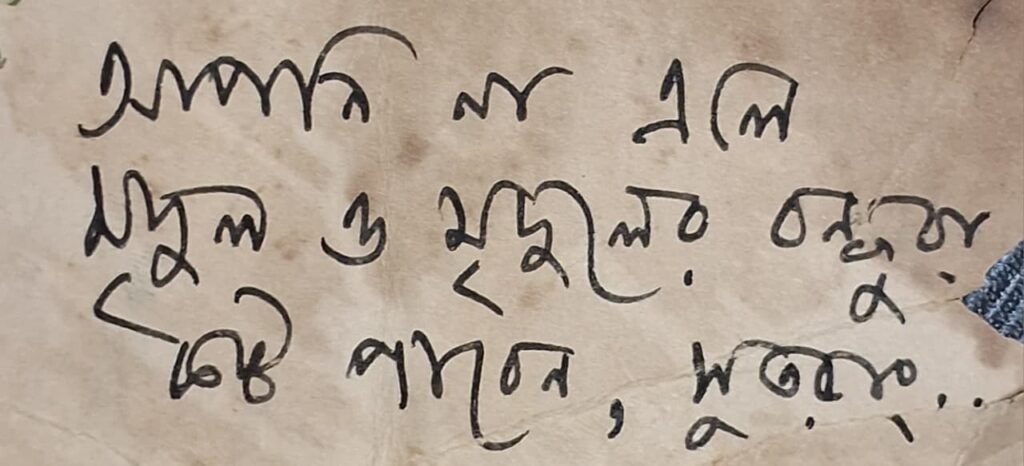 আপনি না এলে
মৃদুল ও মৃদুলের বন্ধুরা
কষ্ট পাবেন, সুতরাং...